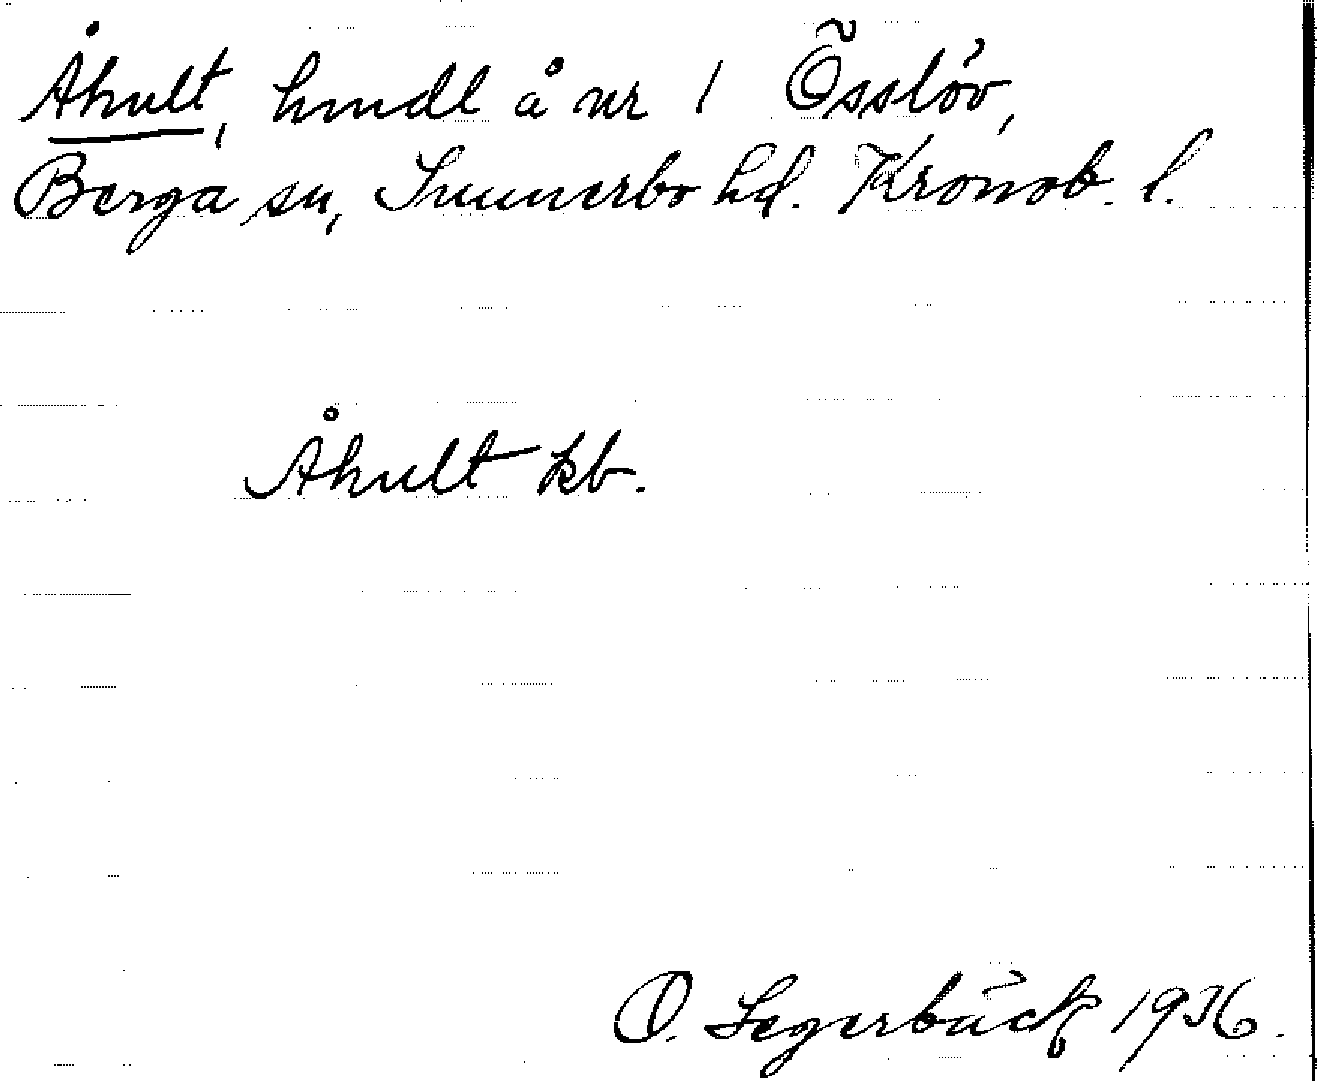 Åhult, hmdl å nr 1 Össlöv,
Berga sn, Sunnerbo hd. Kronob. l.
Åhult kb.
O. Segerbäck 1936.